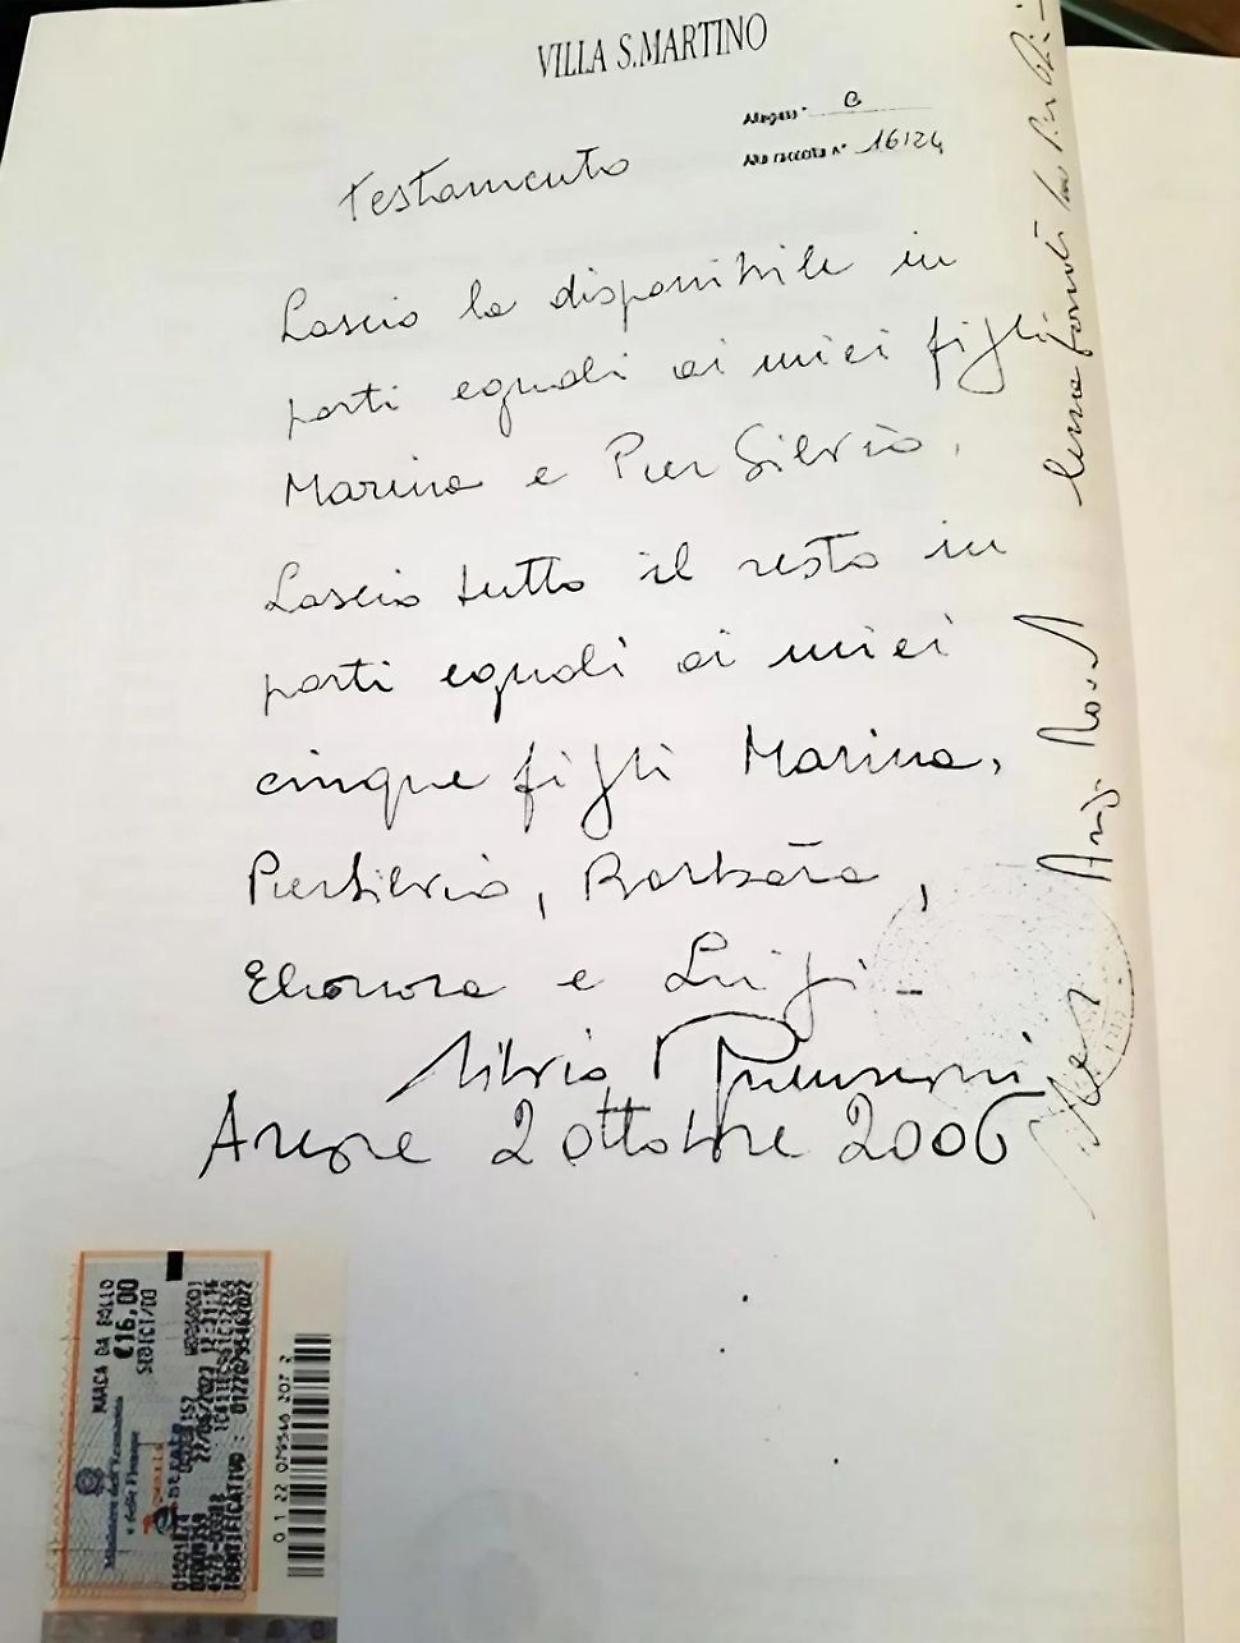 VILLA S.MARTINO
Allegato " B
Alla raccolta n° 16124
Testamento
Lascio la disponibile in
parti eguali ai miei figli
Marina e Pier Silvio.
Lascio tutto il resto in
parti eguali ai miei
cinque figli Marina,
PierSilvio, Barbara,
Eleonora e Luigi -
Silvio Berlusconi
Arcore 2 ottobre 2006
MARCA DA BOLLO
€16,00
SEDICI/00
Ministero dell'Economia
e delle Finanze
IDENTIFICATIVO :